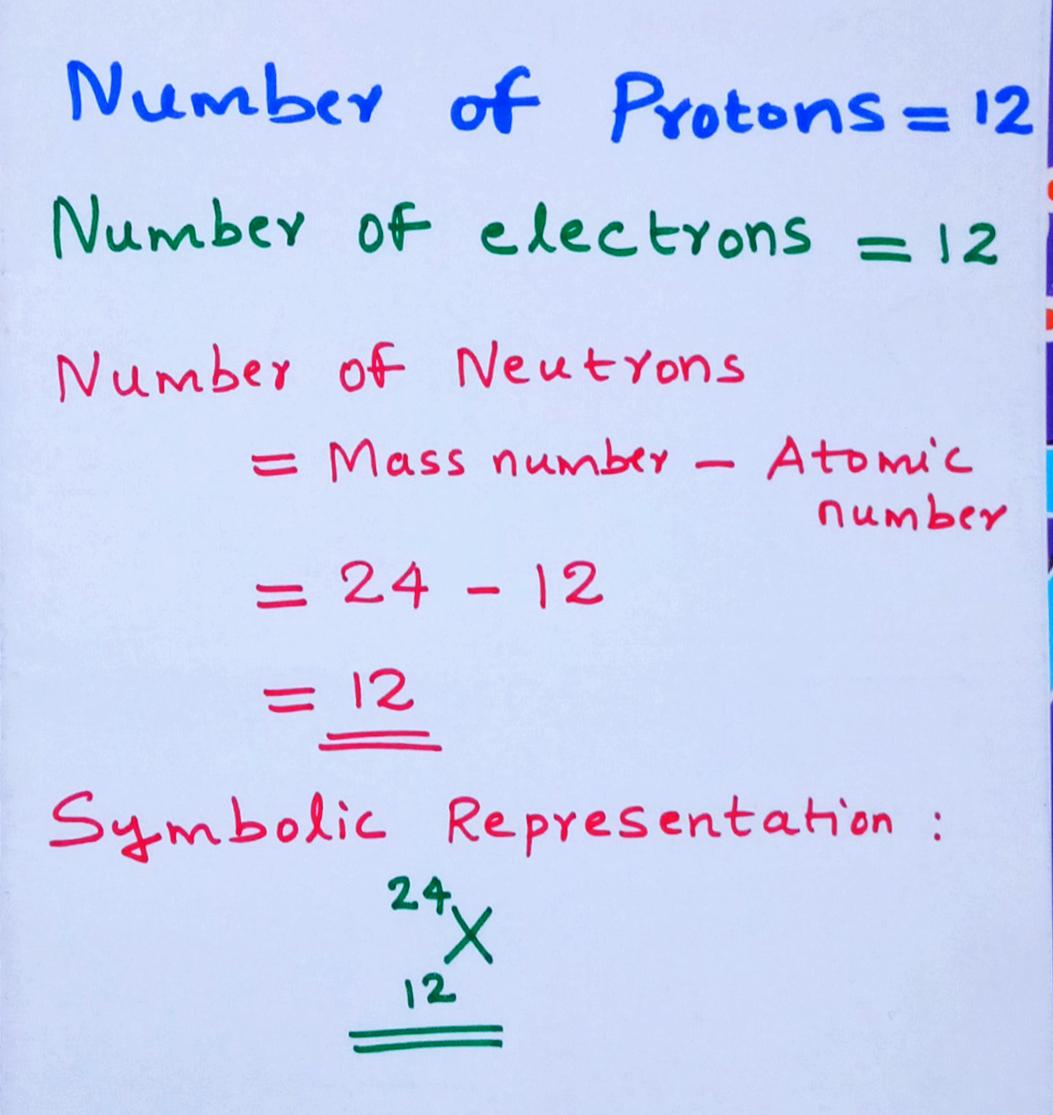 Number of Protons = 12
Number of electrons = 12
Number of Neutrons
= Mass number - Atomic
number
= 24 - 12
= 12
Symbolic Representation :
24
X
12